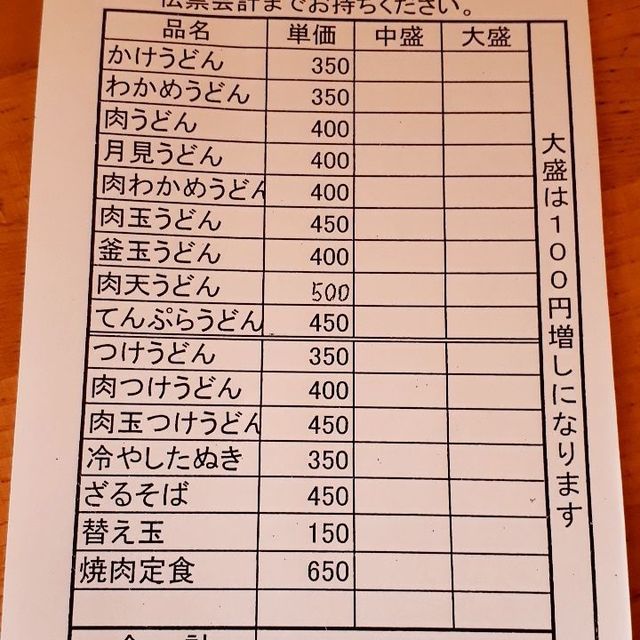 伝票会計までお持ちください。
品名 単価 中盛 大盛
かけうどん 350
わかめうどん 350
肉うどん 400
月見うどん 400
肉わかめうどん 400
肉玉うどん 450
釜玉うどん 400
肉天うどん 500
てんぷらうどん 450
つけうどん 350
肉つけうどん 400
肉玉つけうどん 450
冷やしたぬき 350
ざるそば 450
替え玉 150
焼肉定食 650
合計
大盛は100円増しになります